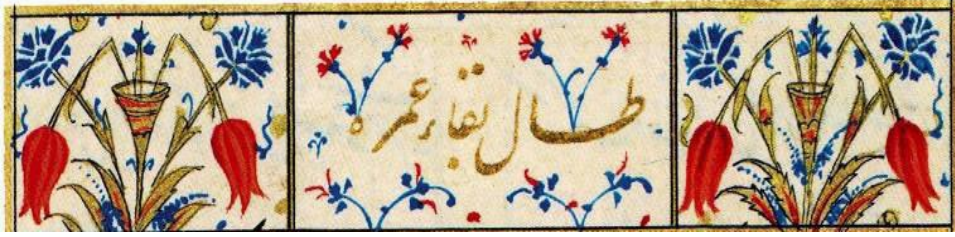 طال بقاء عمره